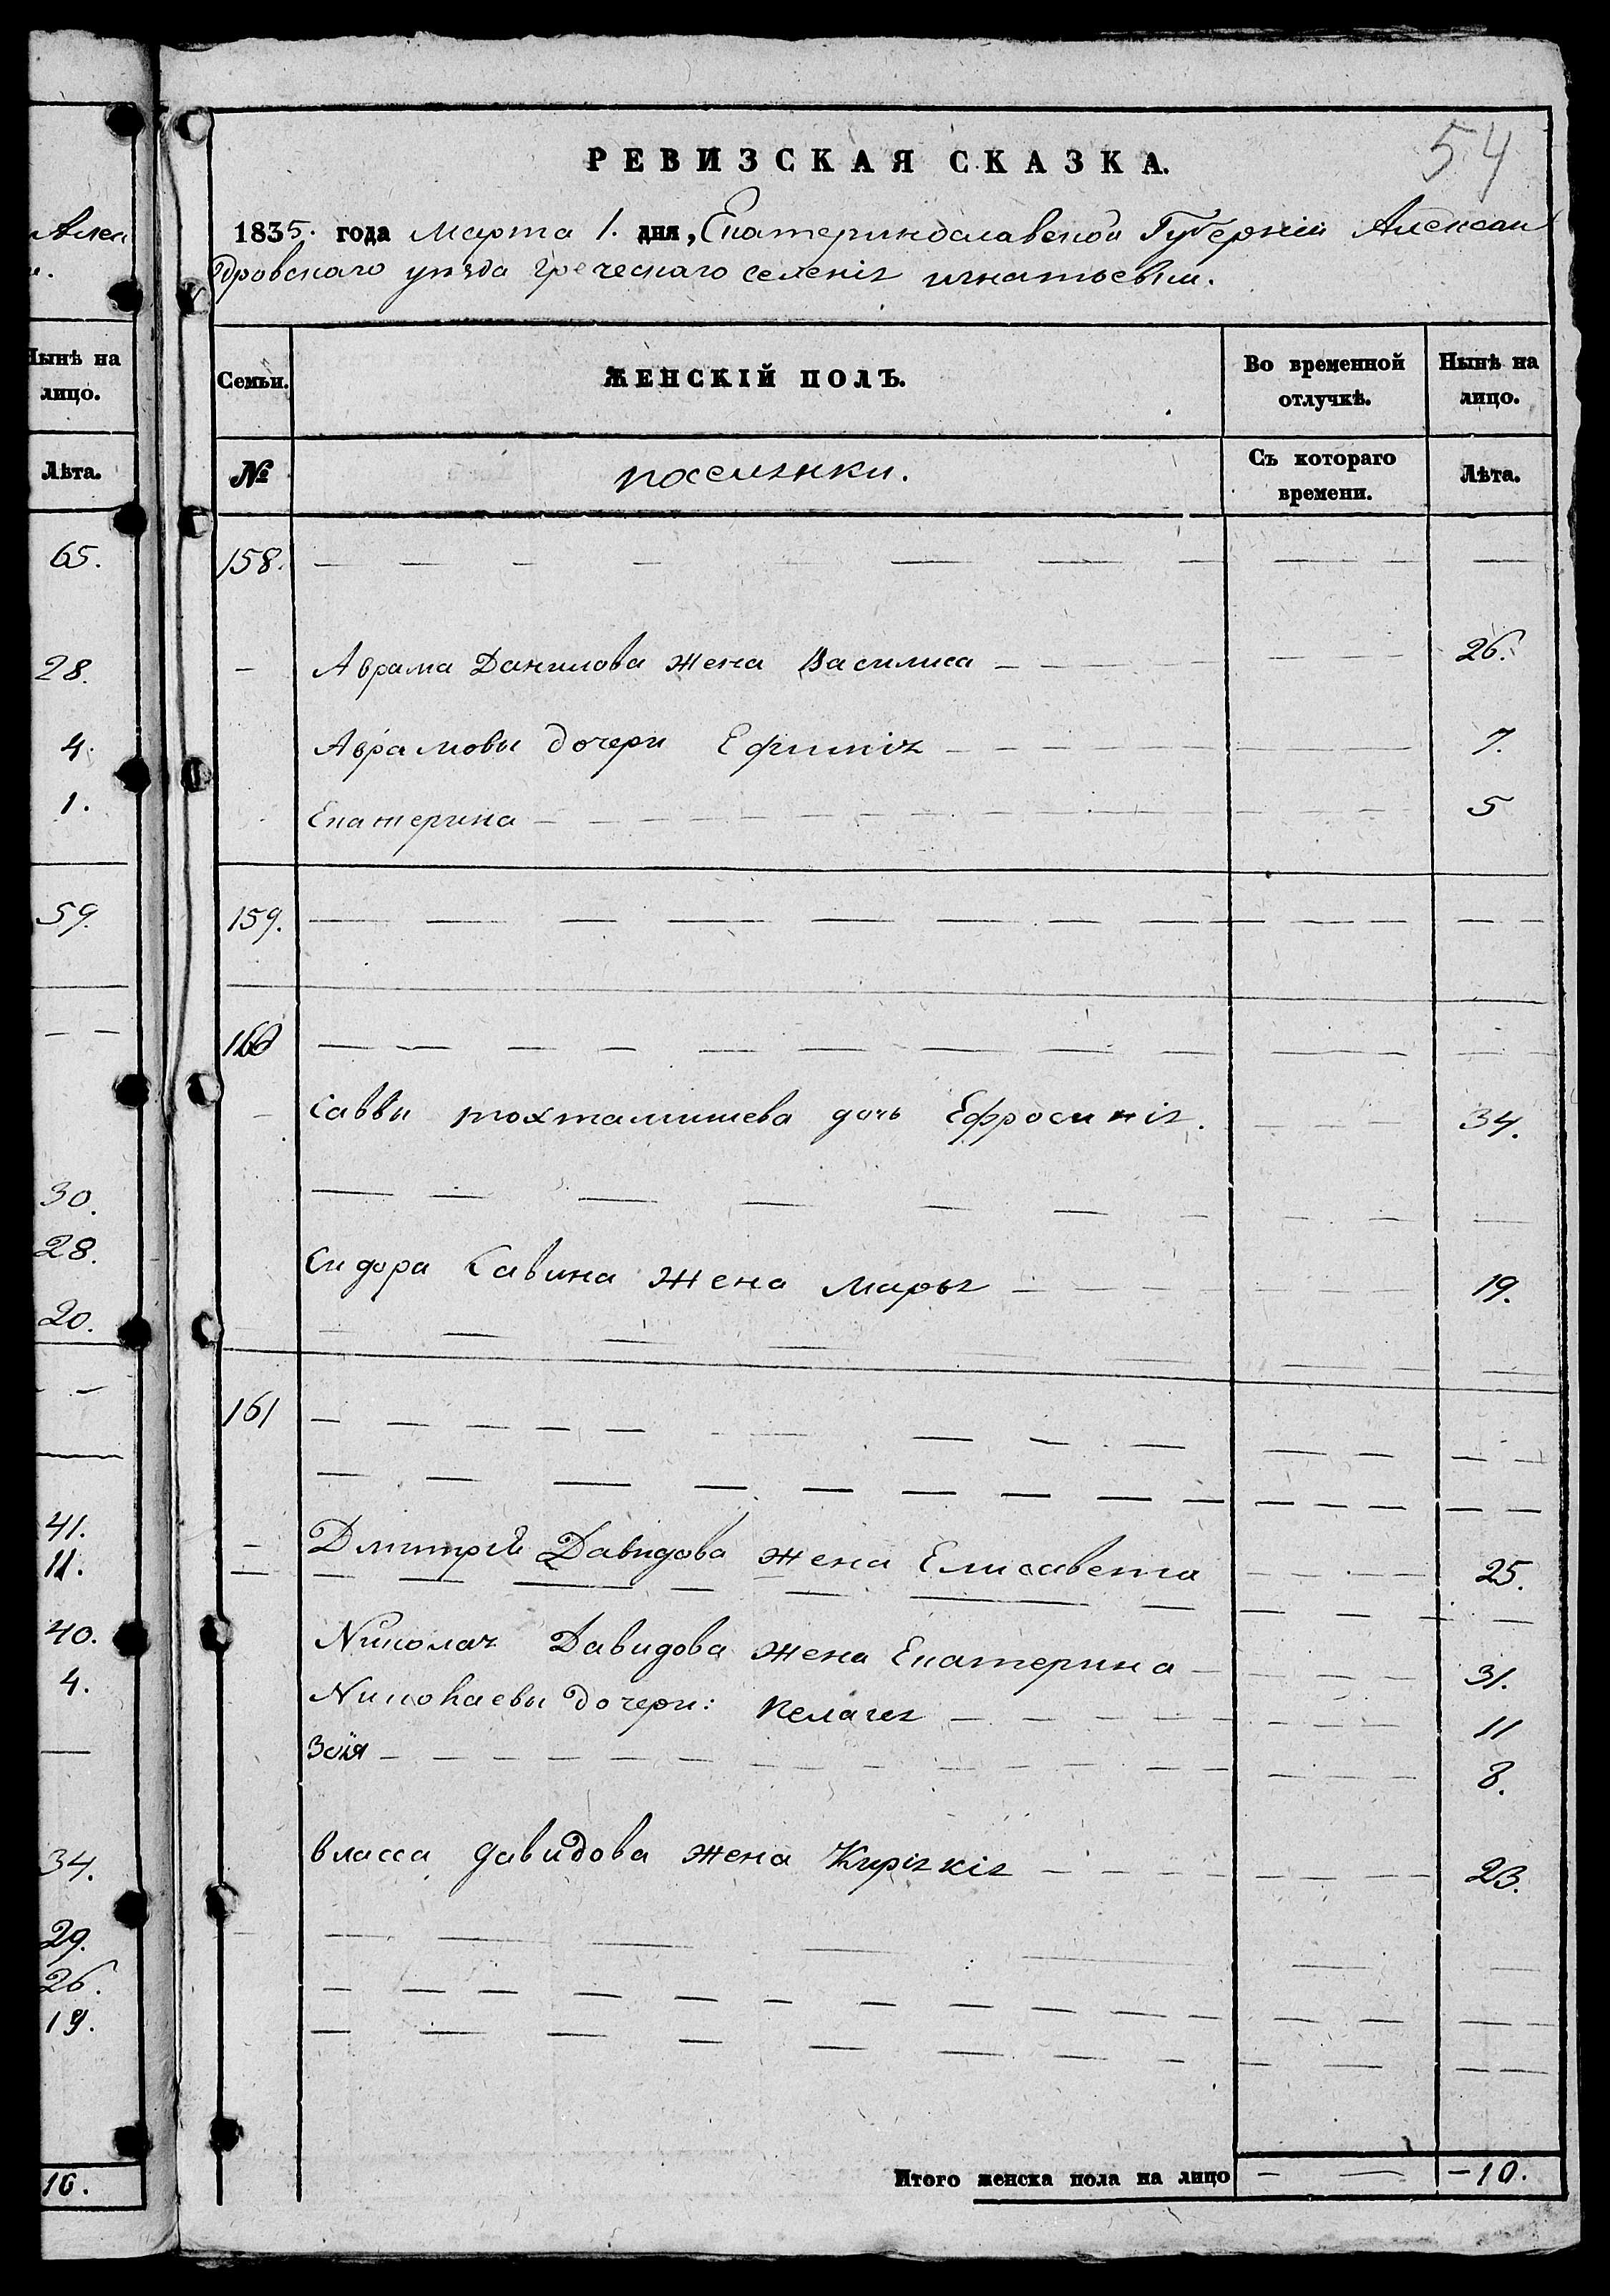 Алек
Нынѣ на
лицо.
Лѣта.
65.
28.
4.
1.
59.
30.
28.
20.
41.
11.
40.
4.
34.
29.
26.
19.
16.
54
РЕВИЗСКАЯ СКАЗКА.
1835. года Марта 1. дня, Екатеринославской Губерніи Алексан
дровскаго уѣзда греческаго селенія игнатьевки.
Семьи.
ЖЕНСКІЙ ПОЛЪ.
Во временной
отлучкѣ.
Нынѣ на
лицо.
№
поселянки.
Съ котораго
времени.
Лѣта.
158.
Аврама Данилова жена Василиса 26.
Аврамовы дочери Ефимія 7.
Екатерина 5
159.
160
Саввы тохтамишева дочь Ефросинія. 34.
Сидора Савина жена Марья 19.
161
Дмитрій Давидова жена Елисавета 25.
Николая Давидова жена Екатерина 31.
Николаевы дочери: Пелагея 11
Зоія 8.
Власса давидова жена Киріякія 23.
Итого женска пола на лицо — — —10.